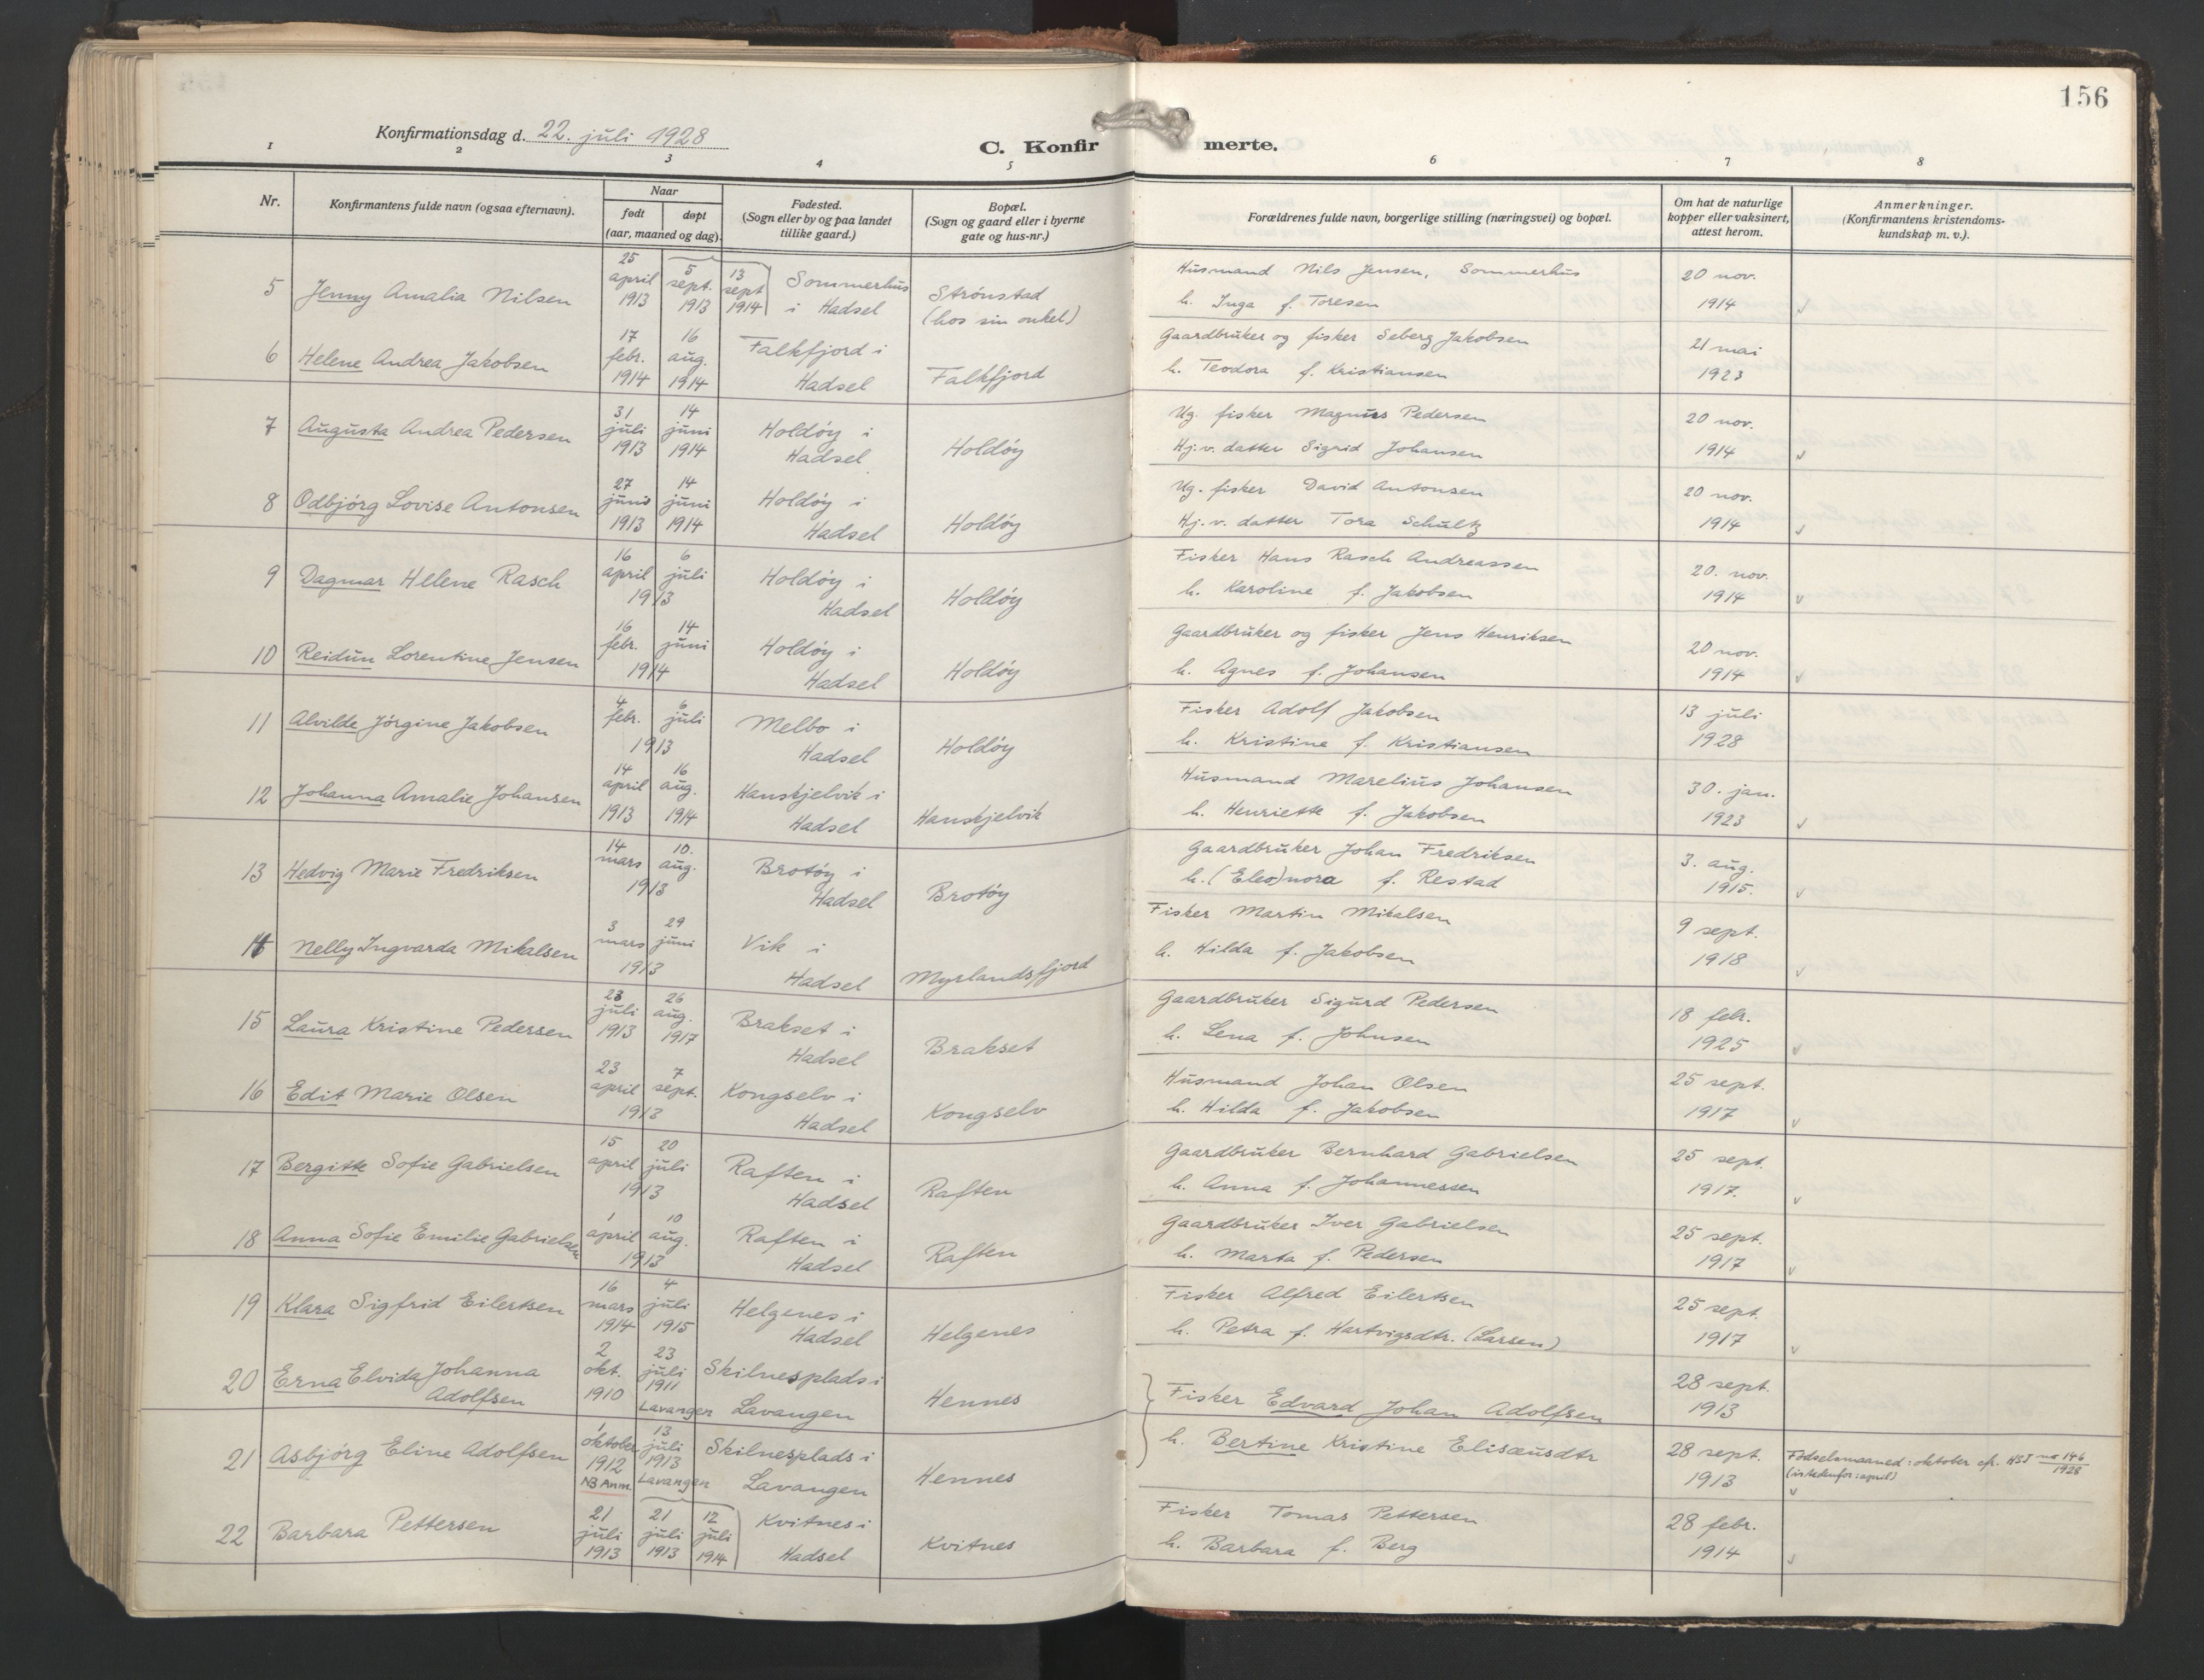 156
Konfirmationsdag d. 22. juli 1928
C. Konfirmerte.
1 2 3 4 5 6 7 8
Nr.
Konfirmantens fulde navn (ogsaa efternavn).
Naar
født døpt
(aar, maaned og dag).
Fødested.
(Sogn eller by og paa landet
tillike gaard.)
Bopæl.
(Sogn og gaard eller i byerne
gate og hus-nr.)
Forældrenes fulde navn, borgerlige stilling (næringsvei) og bopæl.
Om hat de naturlige
kopper eller vaksinert,
attest herom.
Anmerkninger.
(Konfirmantens kristendoms-
kundskap m. v.).
5 Jenny Amalia Nilsen
25 april 1913
5 sept. 1913
13 sept 1914
Sommerhus
i Hadsel
Strønstad
(hos sin onkel)
Husmand Nils Jensen, Sommerhus
h. Inga f. Toresen
20 nov.
1914
6 Helene Andrea Jakobsen
17 febr. 1914
16 aug. 1914
Falkfjord i
Hadsel
Falkfjord
Gaardbruker og fisker Seberg Jakobsen
h. Teodora f. Kristiansen
21 mai
1923
7 Augusta Andrea Pedersen
31 juli 1913
14 juni 1914
Holdøy i
Hadsel
Holdøy
Ug. fisker Magnus Pedersen
Hj. v. datter Sigrid Johansen
20 nov.
1914
8 Odbjørg Lovise Antonsen
27 juni 1913
14 juni 1914
Holdøy i
Hadsel
Holdøy
Ug. fisker David Antonsen
Hj. v. datter Tora Schultz
20 nov.
1914
9 Dagmar Helene Rasch
16 april
6 juli
1913
Holdøy i
Hadsel
Holdøy
Fisker Hans Rasch Andreassen
h. Karoline f. Jakobsen
20. nov.
1914
10 Reidun Lorentine Jensen
16 febr.
14 juni
1914
Holdøy i
Hadsel
Holdøy
Gaardbruker og fisker Jens Henriksen
h. Agnes f. Johansen
20 nov.
1914
11 Alvilde Jørgine Jakobsen
4 febr.
6 juli
1913
Melbo i
Hadsel
Holdøy
Fisker Adolf Jakobsen
h. Kristine f. Kristiansen
13 juli
1928
12 Johanna Amalie Johansen
14 april 1913
16 aug. 1914
Hanskjelvik i
Hadsel
Hanskjelvik
Husmand Marelius Johansen
h. Henriette f. Jakobsen
30. jan.
1923
13 Hedvig Marie Fredriksen
14 mars
10. aug.
1913
Brotøy i
Hadsel
Brotøy
Gaardbruker Johan Fredriksen
h. (Eleo)nora f. Restad
3. aug.
1915.
14 Nelly Ingvarda Mikalsen
3 mars
29 juni
1913
Vik i
Hadsel
Myrlandsfjord
Fisker Martin Mikalsen
h. Hilda f. Jakobsen
9 sept.
1918
15 Laura Kristine Pedersen
23 juli 1913
26 aug. 1917
Brakset i
Hadsel
Brakset
Gaardbruker Sigurd Pedersen
h. Lena f. Johnsen
18 febr.
1925
16 Edit Marie Olsen
23 april
7 sept.
1913
Kongselv i
Hadsel
Kongselv
Husmand Johan Olsen
h. Hilda f. Jakobsen
25 sept.
1917
17 Bergitte Sofie Gabrielsen
15 april
20 juli
1913
Raften i
Hadsel
Raften
Gaardbruker Bernhard Gabrielsen
h. Anna f. Johannessen
25 sept.
1917.
18 Anna Sofie Emilie Gabrielsen
1 april
10 aug.
1913
Raften i
Hadsel
Raften
Gaardbruker Iver Gabrielsen
h. Marta f. Pedersen
25 sept.
1917
19 Klara Sigfrid Eilertsen
16 mars 1914
4 juli 1915
Helgenes i
Hadsel
Helgenes
Fisker Alfred Eilertsen
h. Petra f. Hartvigsdtr. (Larsen)
25 sept.
1917
20 Erna Elvida Johanna
Adolfsen
2 okt. 1910
23 juli 1911
Lavangen
Skilnesplads i
Lavangen
Hennes
Fisker Edvard Johan Adolfsen
28 sept.
1913
21 Asbjørg Eline Adolfsen
1 oktober 1912
NB Anm.
13 juli 1913
Lavangen
Skilnesplads i
Lavangen
Hennes
h. Bertine Kristine Elisæusdtr
28 sept.
1913
Fødselsmaaned: oktober cfr. HSJ no 146/1928
(istedenfor: april)
22 Barbara Pettersen
21 juli 1913
21 juli 1913
12 juli 1914
Kvitnes i
Hadsel
Kvitnes
Fisker Tomas Pettersen
h. Barbara f. Berg
28 febr.
1914